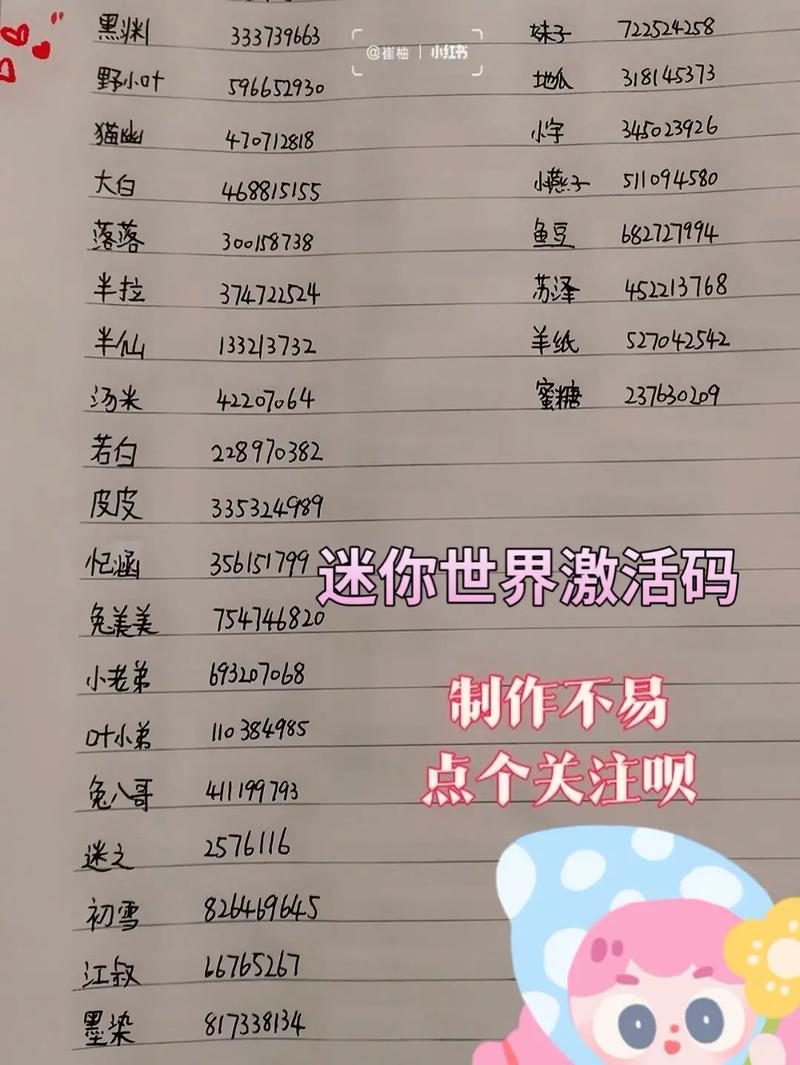 黑渊 333739663
野小叶 596652930
猫幽 470712818
大白 468815155
落落 300158738
半拉 374722524
半仙 133213732
汤米 42207064
若白 228970382
皮皮 335324989
忆涵 356151799
兔美美 754746820
小老弟 693207068
叶小弟 110384985
兔八哥 411199793
迷之 2576116
初雪 826469645
江叔 66765267
墨染 817338134
@崔柚 | 小红书
妹子 722524258
地瓜 318145373
小宇 345023926
小燕子 511094580
鱼豆 682727994
苏泽 452213768
羊纸 527042542
蜜糖 237630209
迷你世界激活码
制作不易
点个关注呗